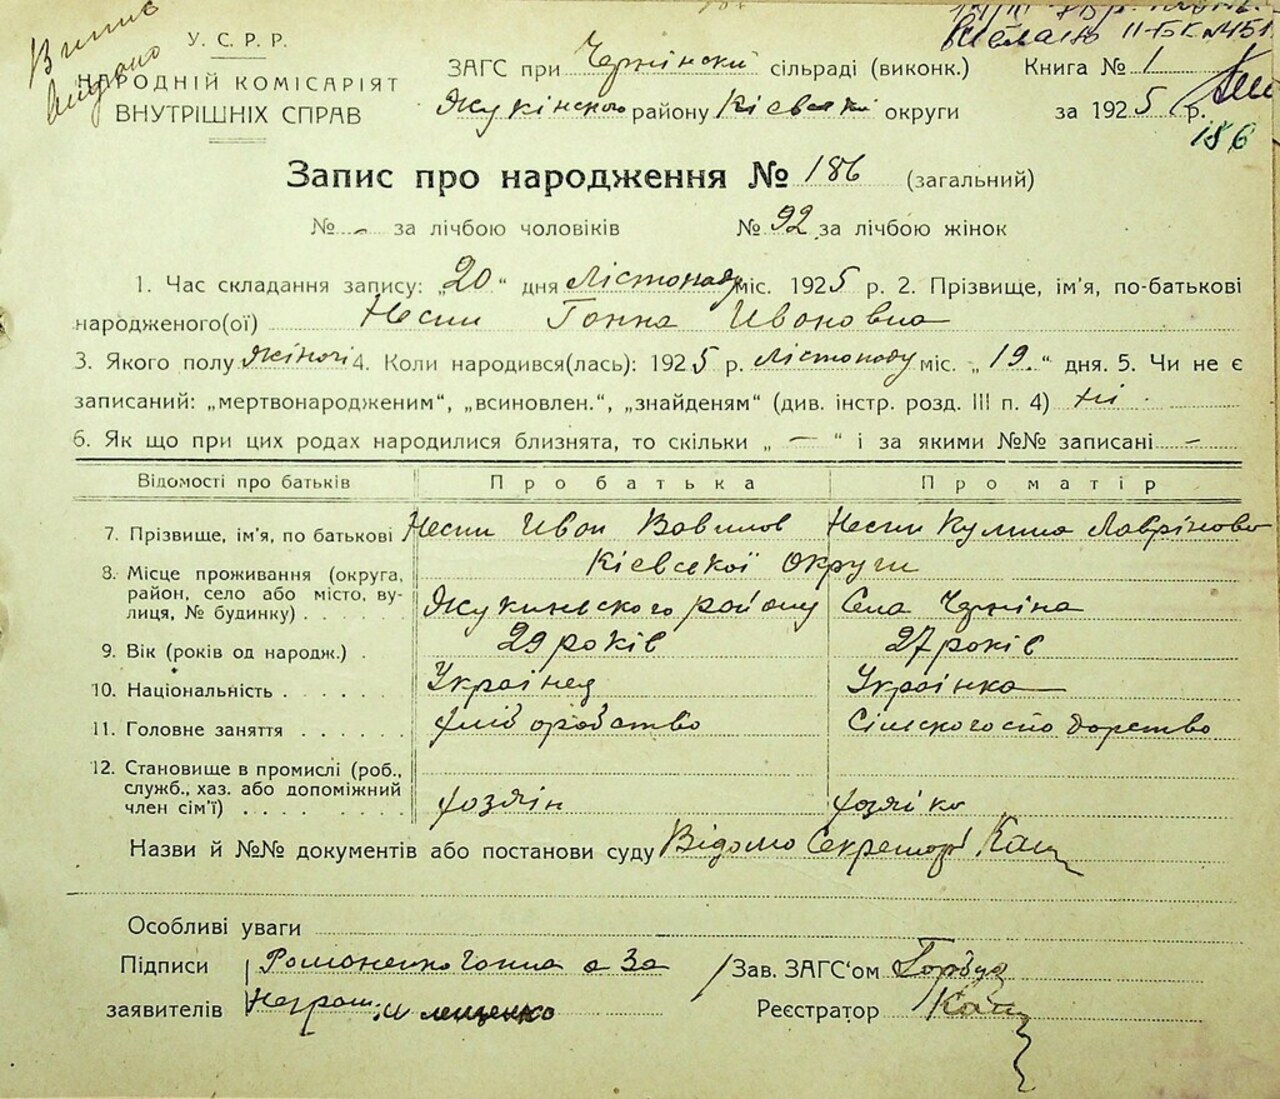 Витяг видано
У. С. Р. Р.
НАРОДНІЙ КОМІСАРІЯТ
ВНУТРІШНІХ СПРАВ
ЗАГС при Чернінскі сільраді (виконк.) Книга № 1
Жукінского району Кієвскі округи за 1925 р.
186
Запис про народження № 186 (загальний)
№ - за лічбою чоловіків № 92 за лічбою жінок
1. Час складання запису: „20“ дня Лістопаду міс. 1925 р. 2. Прізвище, ім'я, по-батькові
народженого(ої) Несин Ганна Ивановна
3. Якого полу жіночі 4. Коли народився(лась): 1925 р. лістопаду міс. „19.“ дня. 5. Чи не є
записаний: „мертвонародженим“, „всиновлен.“, „знайденям“ (див. інстр. розд. III п. 4) ні
6. Як що при цих родах народилися близнята, то скільки „ — “ і за якими №№ записані -
Відомості про батьків Про батька Про матір
7. Прізвище, ім'я, по батькові Несин Иван Вавилов Несин Кулина Лаврінова
8. Місце проживання (округа, район, село або місто, вулиця, № будинку) Кієвскої Округи
Жукинського району Села Черніна
9. Вік (років од народж.) 29 років 27 років
10. Національність Украінец Украінка
11. Головне заняття хліборобство Сільскогосподарство
12. Становище в промислі (роб., служб., хаз. або допоміжний член сім'ї) хозяін хозяйка
Назви й №№ документів або постанови суду Відомо Секретарі
Особливі уваги
Підписи Романенко Ганна а За
заявителів Неграм.
Зав. ЗАГС'ом Горбуд
Реєстратор